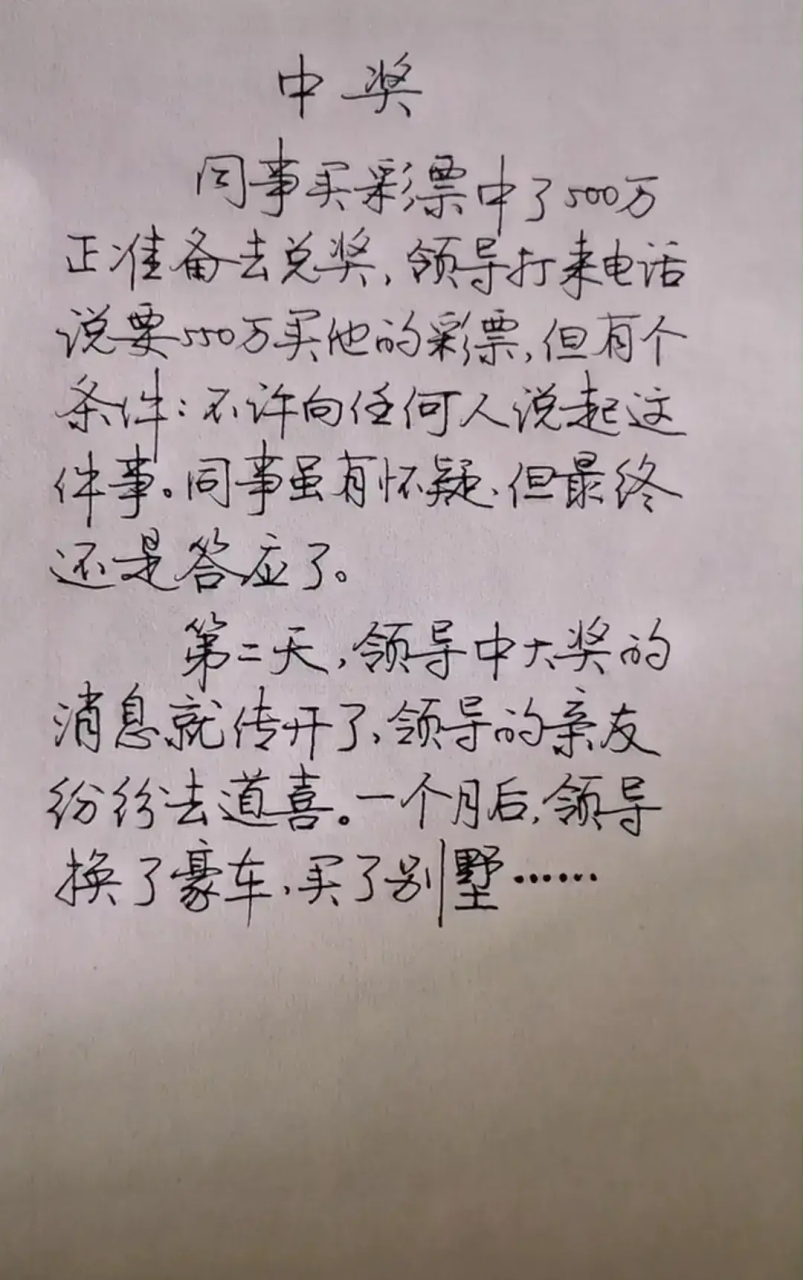 中奖
同事买彩票中了500万
正准备去兑奖,领导打来电话
说要550万买他的彩票,但有个
条件:不许向任何人说起这
件事。同事虽有怀疑、但最终
还是答应了。
第二天,领导中大奖的
消息就传开了,领导的亲友
纷纷去道喜。一个月后,领导
换了豪车,买了别墅……